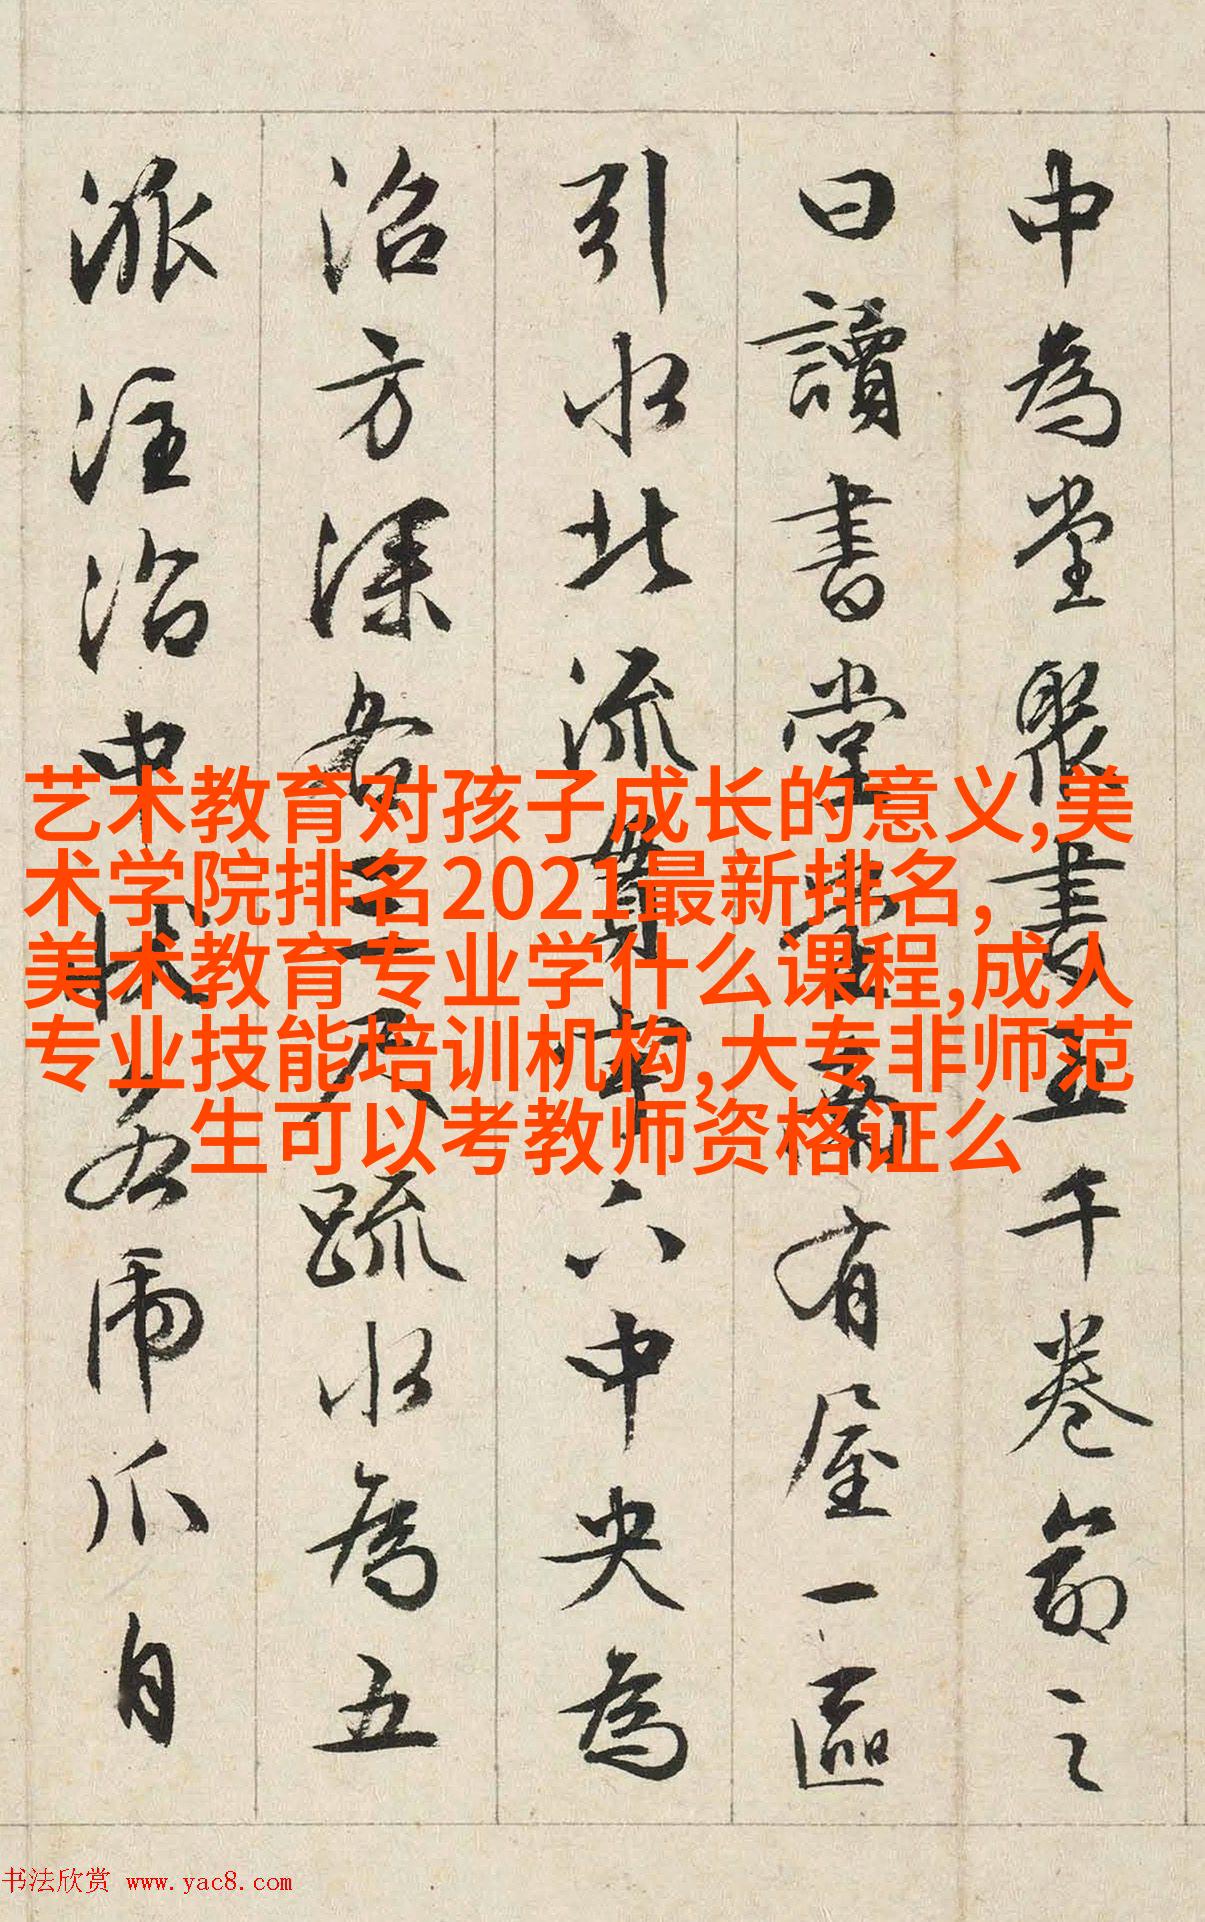 中為堂聚書五千卷命之
曰讀書堂堂南有屋一區
引水北流貫宇下中央為
沼方深各三尺疏水為五
派注沼中狀若虎爪自
艺术教育对孩子成长的意义,美
术学院排名2021最新排名,
美术教育专业学什么课程,成人
专业技能培训机构,大专非师范
生可以考教师资格证么
书法欣赏 www.yac8.com